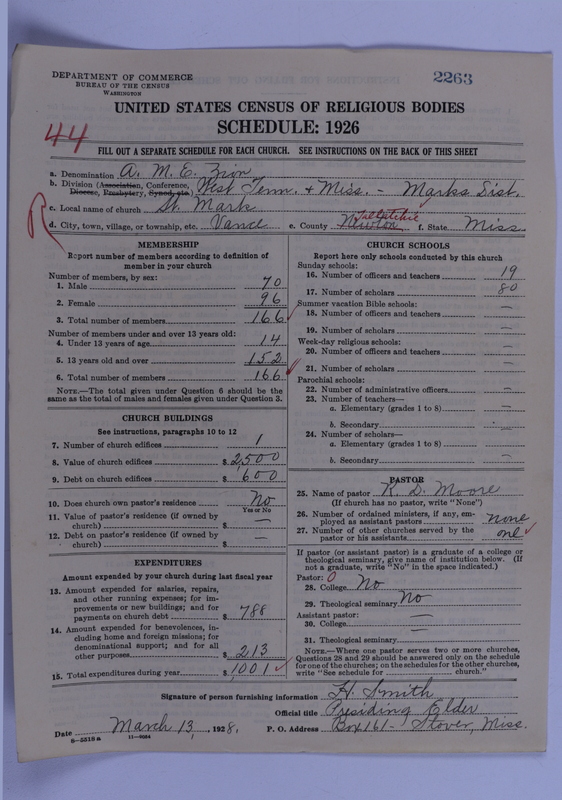 DEPARTMENT OF COMMERCE
BUREAU OF THE CENSUS
WASHINGTON
2263
UNITED STATES CENSUS OF RELIGIOUS BODIES
SCHEDULE: 1926
44
FILL OUT A SEPARATE SCHEDULE FOR EACH CHURCH. SEE INSTRUCTIONS ON THE BACK OF THIS SHEET
a. Denomination A. M. E. Zion
b. Division (Association, Conference, Diocese, Presbytery, Synod, etc.) West Tenn. + Miss. - Marks Dist.
R
c. Local name of church St. Mark
d. City, town, village, or township, etc. Vance e. County Newton Tallahatchie f. State Miss.
MEMBERSHIP
Report number of members according to definition of
member in your church
Number of members, by sex:
1. Male 70
2. Female 96
3. Total number of members 166
Number of members under and over 13 years old:
4. Under 13 years of age 14
5. 13 years old and over 152
6. Total number of members 166
NOTE.—The total given under Question 6 should be the
same as the total of males and females given under Question 3.
CHURCH BUILDINGS
See instructions, paragraphs 10 to 12
7. Number of church edifices 1
8. Value of church edifices $ 2500
9. Debt on church edifices $ 600
10. Does church own pastor's residence No
Yes or No
11. Value of pastor's residence (if owned by
church) $ —
12. Debt on pastor's residence (if owned by
church) $ —
EXPENDITURES
Amount expended by your church during last fiscal year
13. Amount expended for salaries, repairs,
and other running expenses; for im-
provements or new buildings; and for
payments on church debt $ 788
14. Amount expended for benevolences, in-
cluding home and foreign missions; for
denominational support; and for all
other purposes $ 213
15. Total expenditures during year $ 1001
CHURCH SCHOOLS
Report here only schools conducted by this church
Sunday schools:
16. Number of officers and teachers 19
17. Number of scholars 80
Summer vacation Bible schools:
18. Number of officers and teachers —
19. Number of scholars —
Week-day religious schools:
20. Number of officers and teachers —
21. Number of scholars —
Parochial schools:
22. Number of administrative officers —
23. Number of teachers—
a. Elementary (grades 1 to 8) —
b. Secondary —
24. Number of scholars—
a. Elementary (grades 1 to 8) —
b. Secondary —
PASTOR
25. Name of pastor K. D. Moore
(If church has no pastor, write "None")
26. Number of ordained ministers, if any, em-
ployed as assistant pastors none
27. Number of other churches served by the
pastor or his assistants one
If pastor (or assistant pastor) is a graduate of a college or
theological seminary, give name of institution below. (If
not a graduate, write "No" in the space indicated.)
Pastor: 0
28. College No
29. Theological seminary No
Assistant pastor:
30. College —
31. Theological seminary —
NOTE.—Where one pastor serves two or more churches,
Questions 28 and 29 should be answered only on the schedule
for one of the churches; on the schedules for the other churches,
write "See schedule for church."
Signature of person furnishing information H. Smith
Official title Presiding Elder
Date March 13, 1928. P. O. Address Box 161 - Stover, Miss.
8—5318 a 11—9084